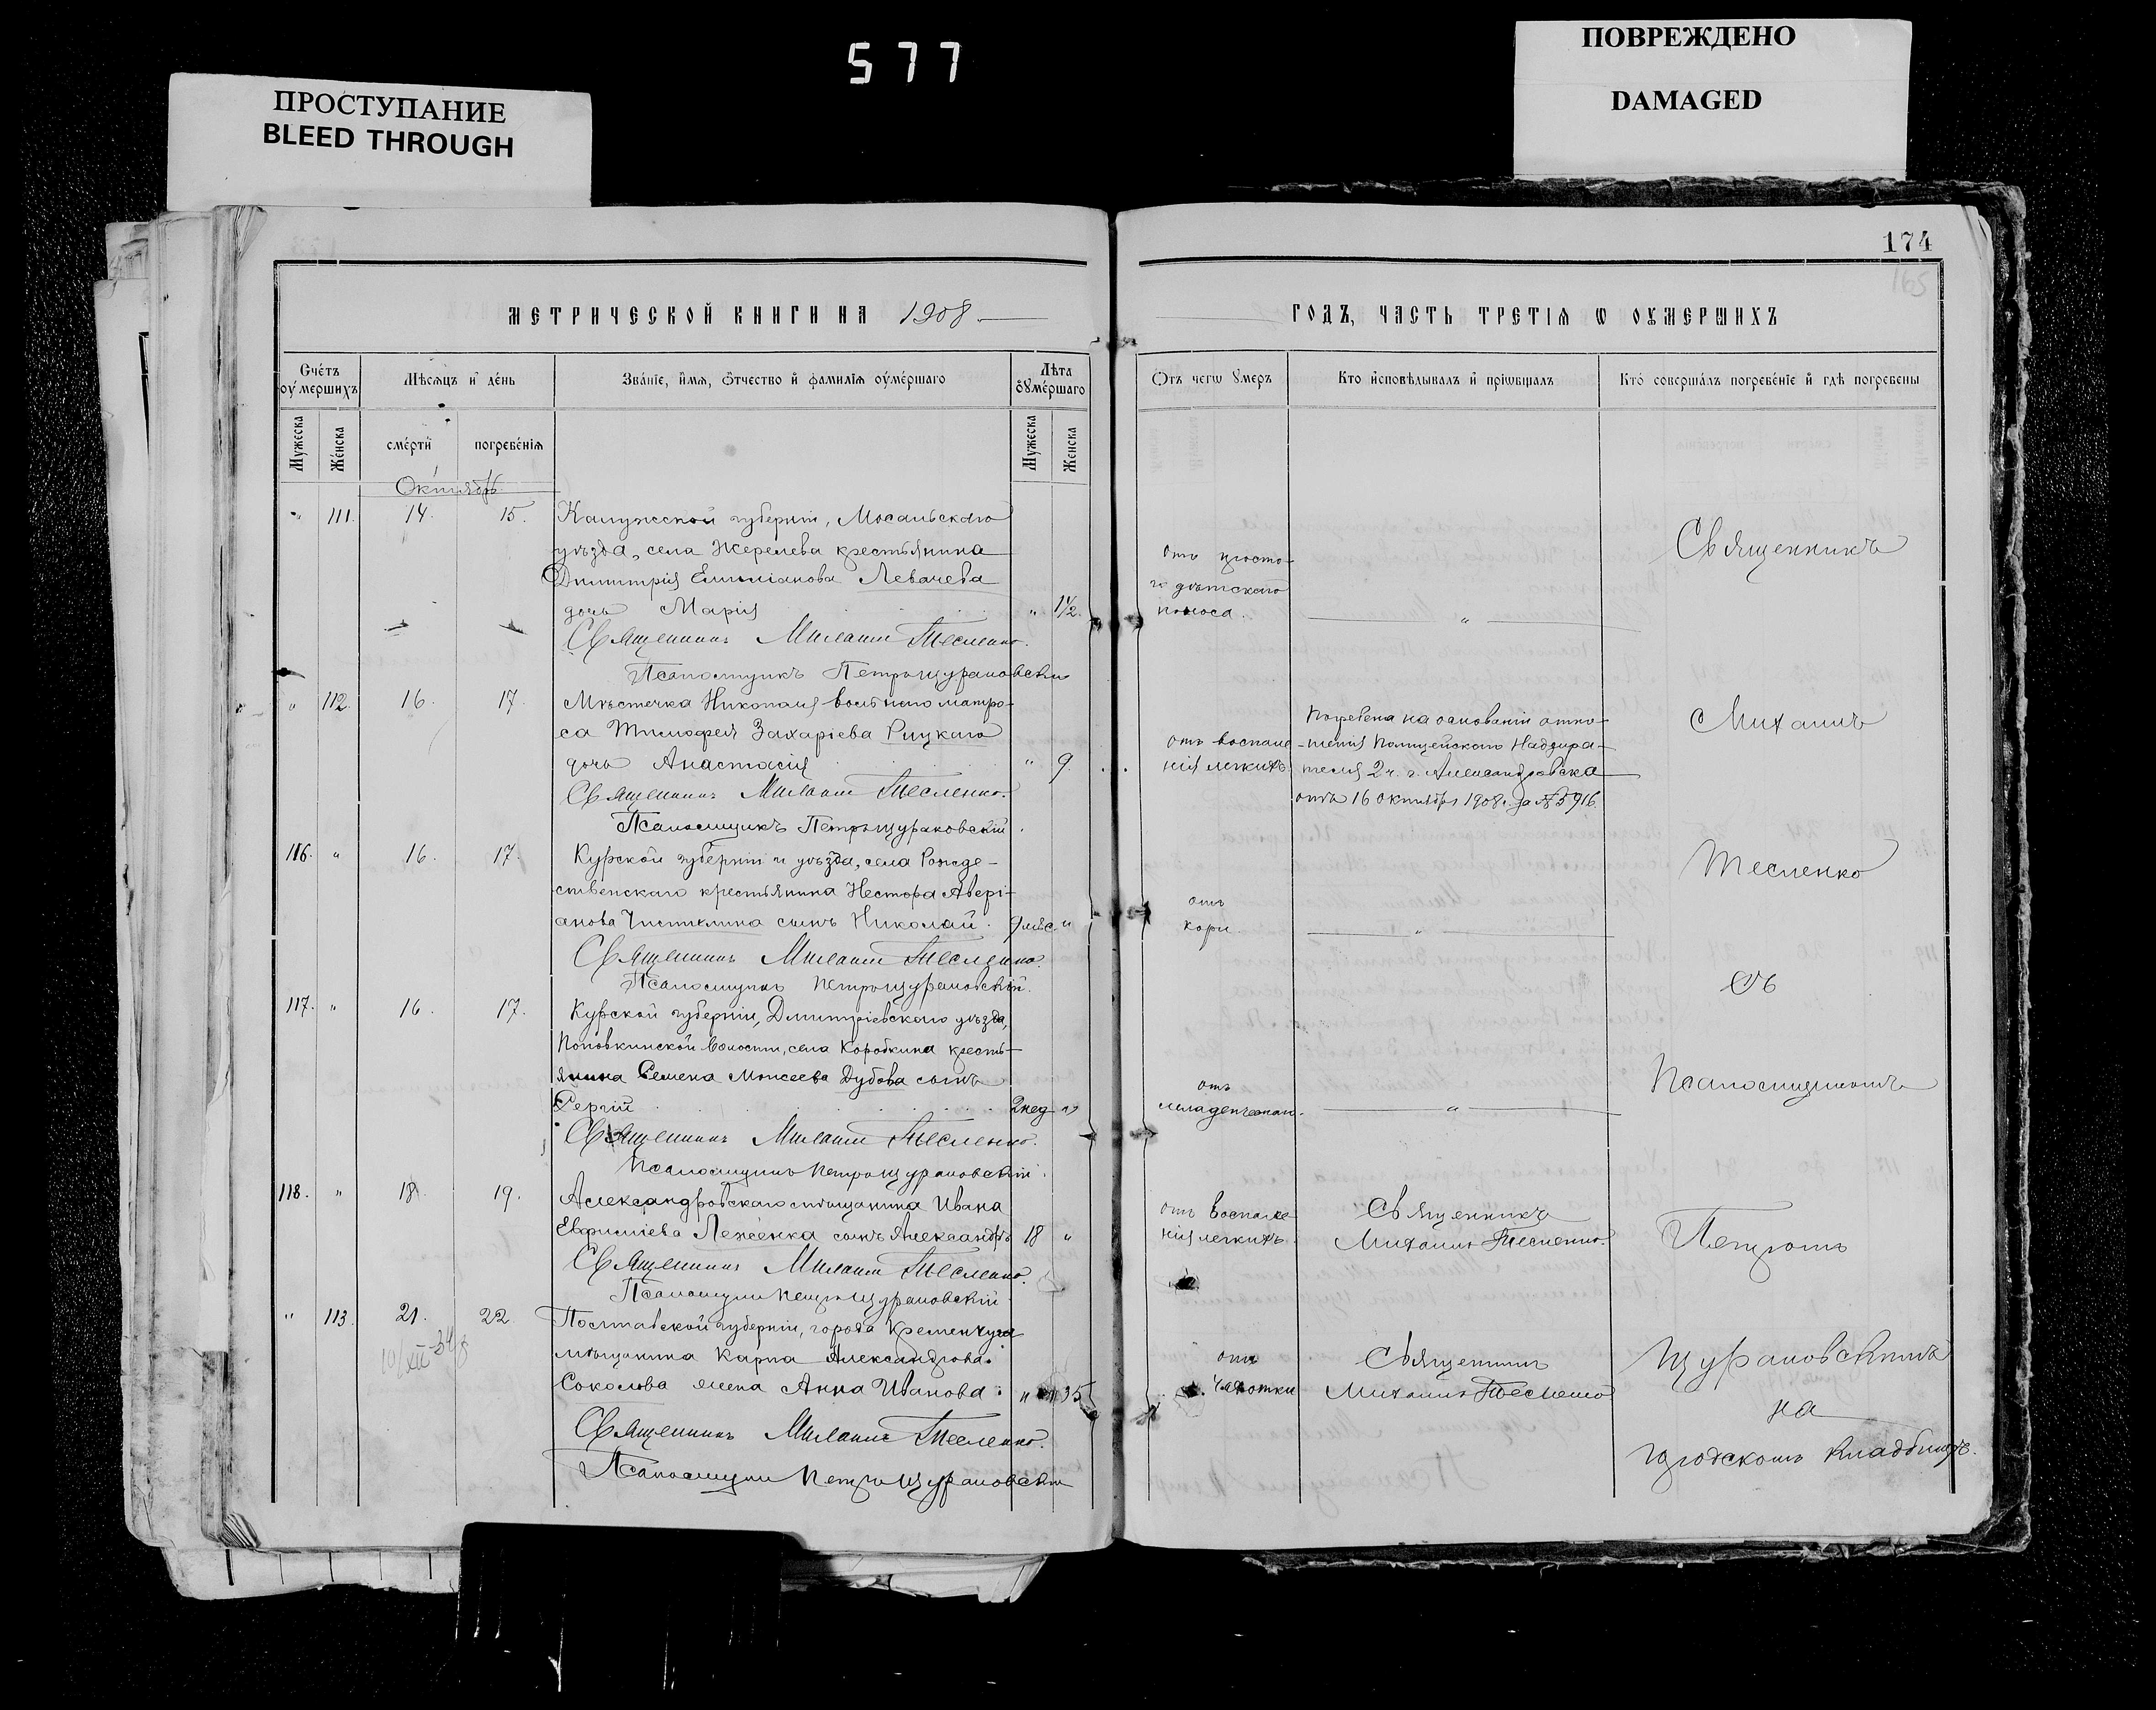 577
ПРОСТУПАНИЕ
BLEED THROUGH
ПОВРЕЖДЕНО
DAMAGED
174
165
МЕТРИЧЕСКОЙ КНИГИ НА 1908
ГОДЪ, ЧАСТЬ ТРЕТІЯ Ѡ ОУМЕРШИХЪ
Счетъ оумершихъ
Мѣсяцъ и день
Званіе, имя, отчество и фамилія оумершаго
Лѣта оумершаго
Отъ чегѡ умеръ
Кто исповѣдывалъ и пріѡбщалъ
Кто совершалъ погребеніе и гдѣ погребены
Мужеска
Женска
смерти
погребенія
Мужеска
Женска
Октябрь
" 111. 14. 15. Калужской губерніи, Мосальскаго
уѣзда, села Жерелева крестьянина
Димитрія Емиліанова Левачева
дочь Марія " 1 1/2.
отъ просто-
го дѣтскаго
поноса.
"
Священникъ Михаилъ Тесленко.
Псаломщикъ Петръ Щурановскій
" 112. 16. 17. Мѣстечка Николая вольнаго матро-
са Тимофея Захаріева Рицкаго
дочь Анастасія " 9.
отъ воспале-
нія легкихъ.
Погребена на основаніи отно-
шенія Полицейскаго Надзира-
теля 2 ч. г. Александровска
отъ 16 октября 1908 г. за № 5916.
Священникъ Михаилъ Тесленко.
Псаломщикъ Петръ Щурановскій.
116. " 16. 17. Курской губерніи и уѣзда, села Рожде-
ственскаго крестьянина Нестора Авері-
анова Чистилина сынъ Николай. 9 мѣс. "
отъ
кори.
"
Священникъ Михаилъ Тесленко.
Псаломщикъ Петръ Щурановскій.
117. " 16. 17. Курской губерніи, Дмитріевскаго уѣзда,
Поповкинской волости, села Коробкина кресть-
янина Семена Моисеева Дубова сынъ
Сергій 2 нед. "
отъ
младенческой.
"
Священникъ Михаилъ Тесленко.
Псаломщикъ Петръ Щурановскій.
118. " 18. 19. Александровскаго мѣщанина Ивана
Евфиміева Леженка сынъ Александръ 18 "
отъ воспале-
нія легкихъ.
Священникъ
Михаилъ Тесленко.
Священникъ Михаилъ Тесленко.
Псаломщикъ Петръ Щурановскій
" 113. 21. 22 Полтавской губерніи, города Кременчуга
мѣщанина Карпа Александрова
Соколова жена Анна Иванова. " 35
отъ
чахотки
Священникъ
Михаилъ Тесленко
Священникъ Михаилъ Тесленко.
Псаломщикъ Петръ Щурановскій
Священникъ
Михаилъ
Тесленко
съ
Псаломщикомъ
Петромъ
Щурановскимъ
на
городскомъ кладбищѣ.